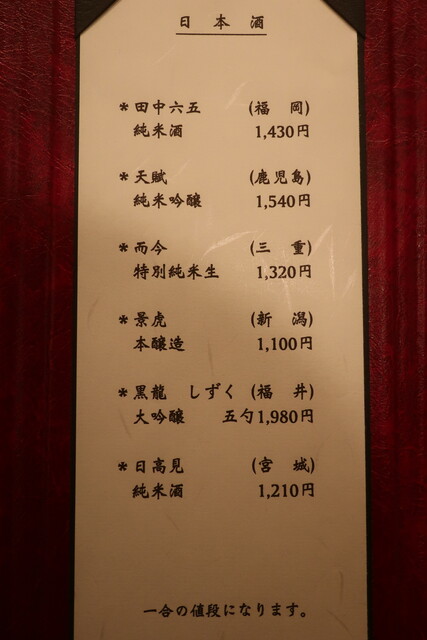 日本酒
*田中六五 (福岡)
純米酒 1,430円
*天賦 (鹿児島)
純米吟醸 1,540円
*而今 (三重)
特別純米生 1,320円
*景虎 (新潟)
本醸造 1,100円
*黒龍 しずく (福井)
大吟醸 五勺1,980円
*日高見 (宮城)
純米酒 1,210円
一合の値段になります。